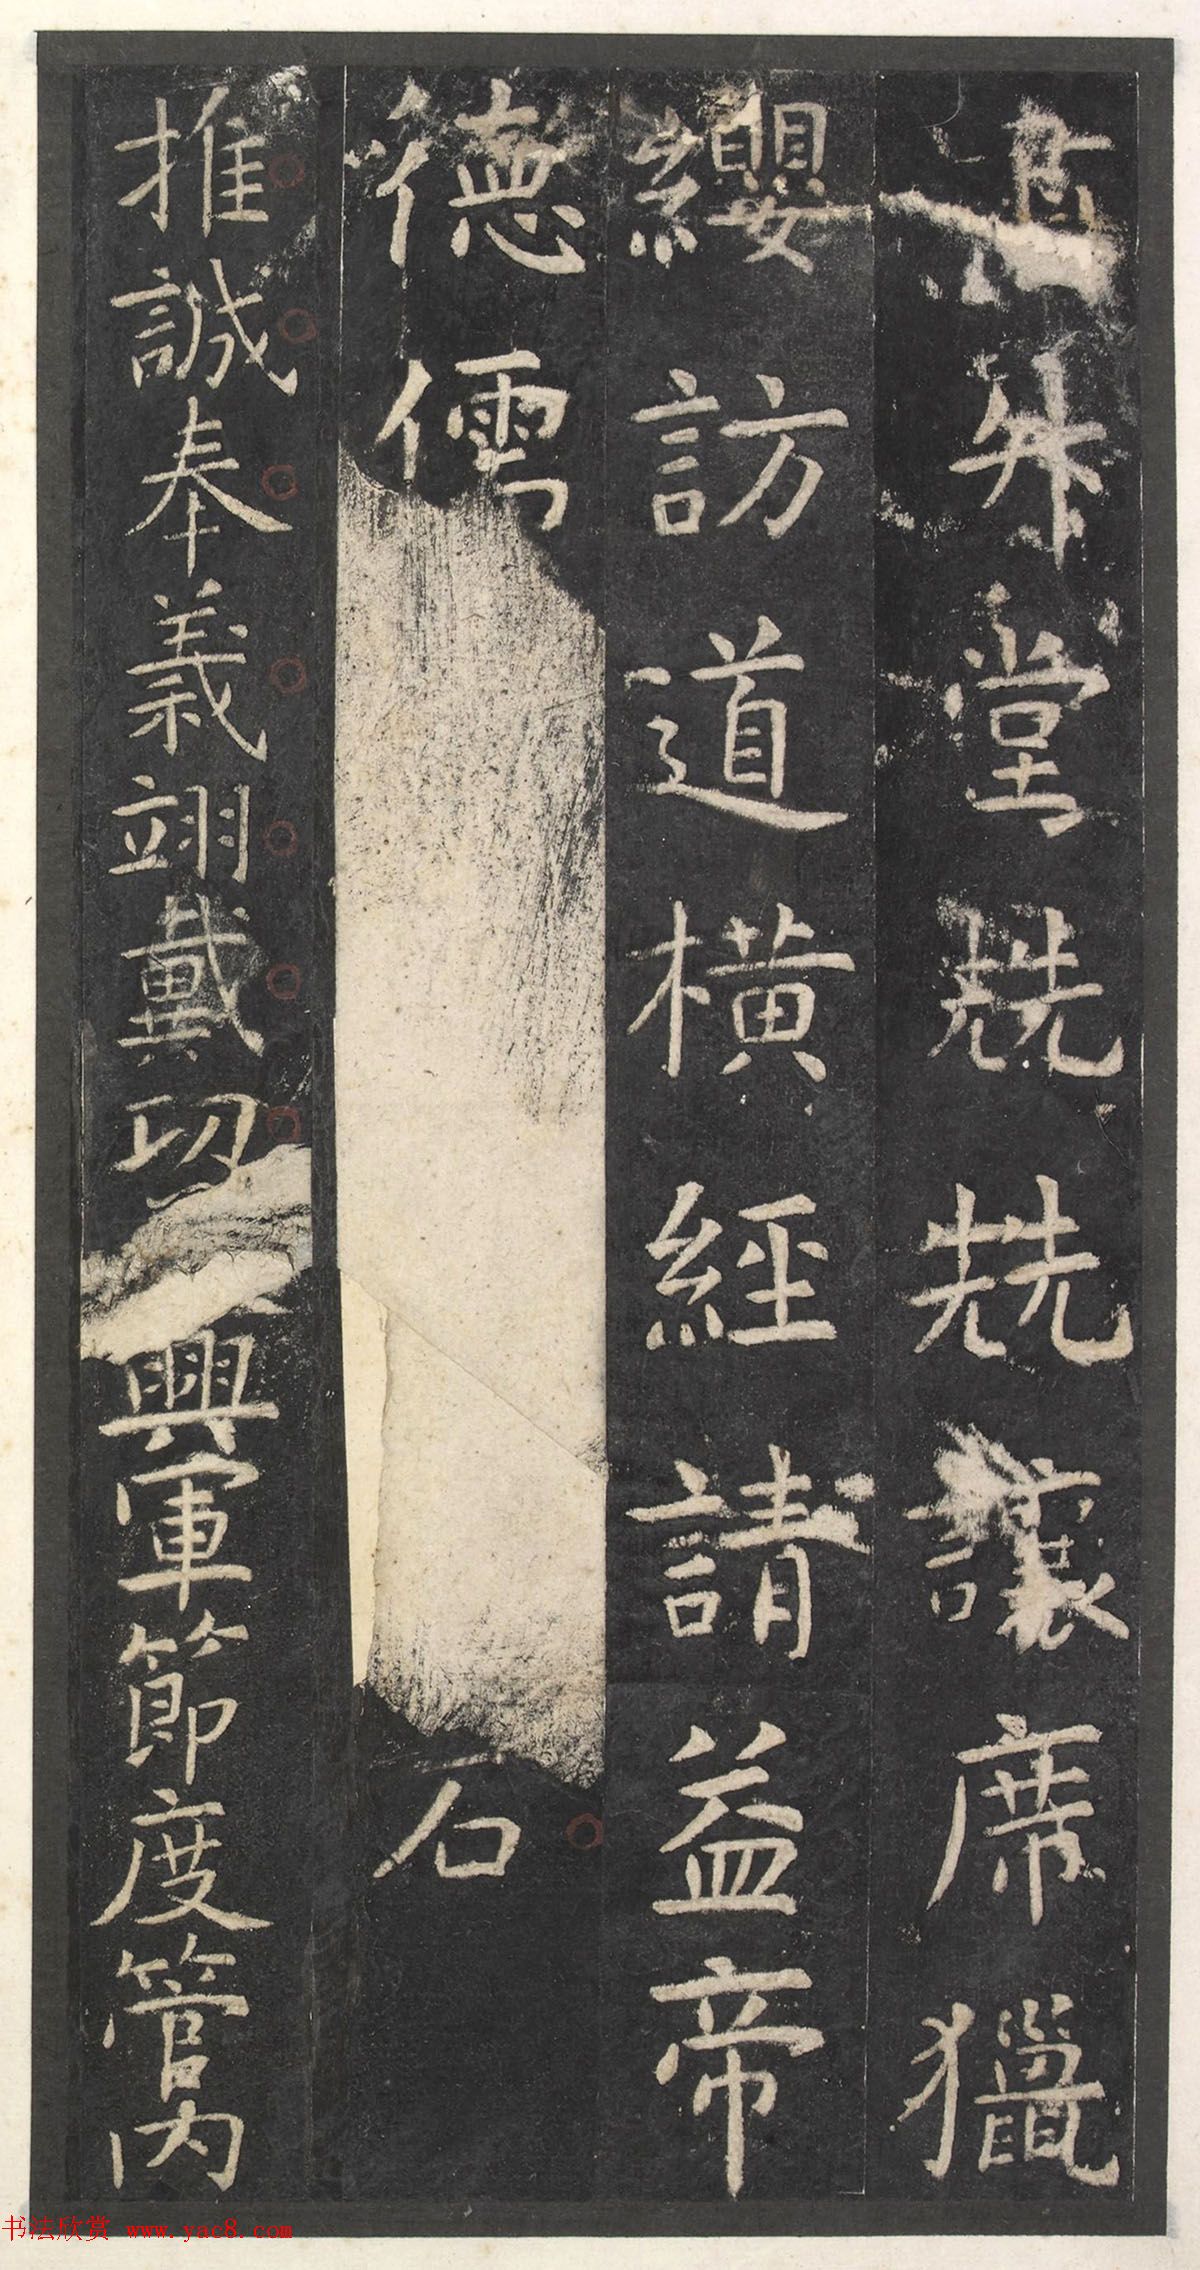 升堂兢兢讓席獵
纓訪道橫經請益帝
德儒石
推誠奉義翊戴功興軍節度管內
书法欣赏 www.yac8.com